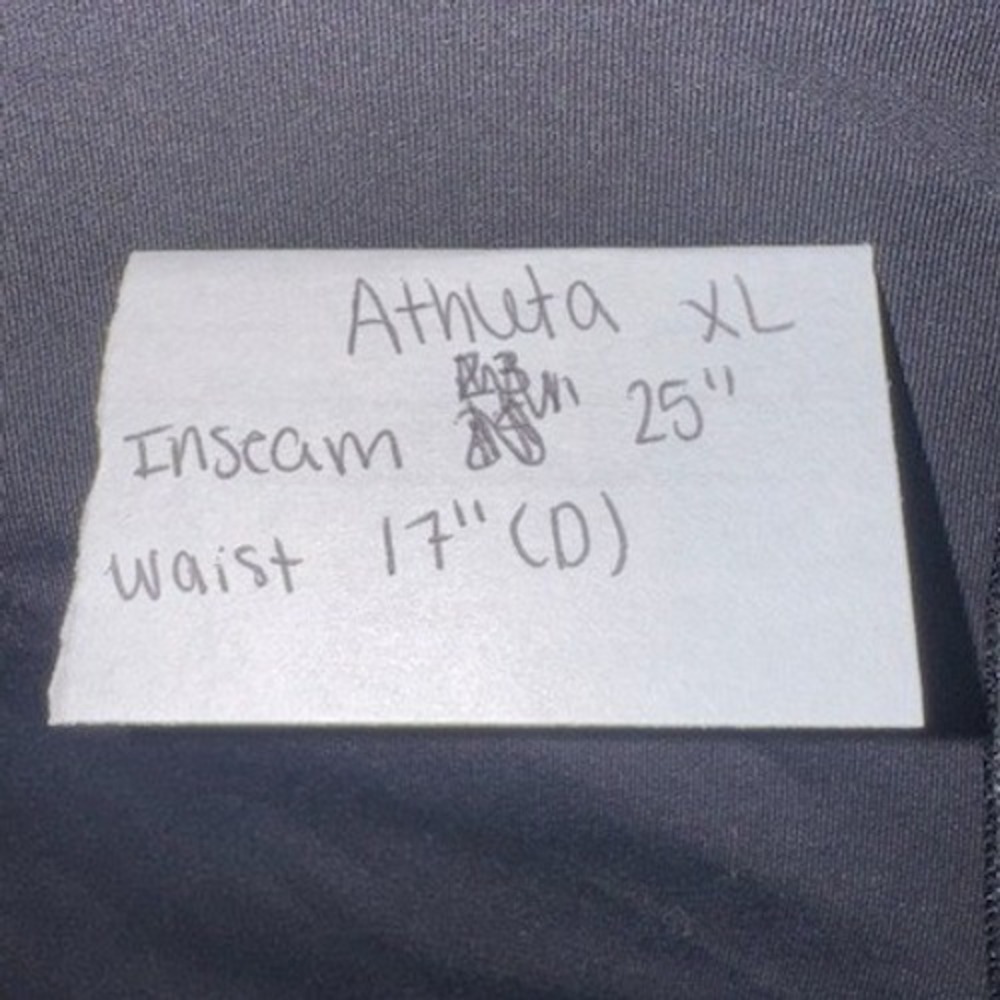 Athleta XL
Inseam 25"
Waist 17" (D)